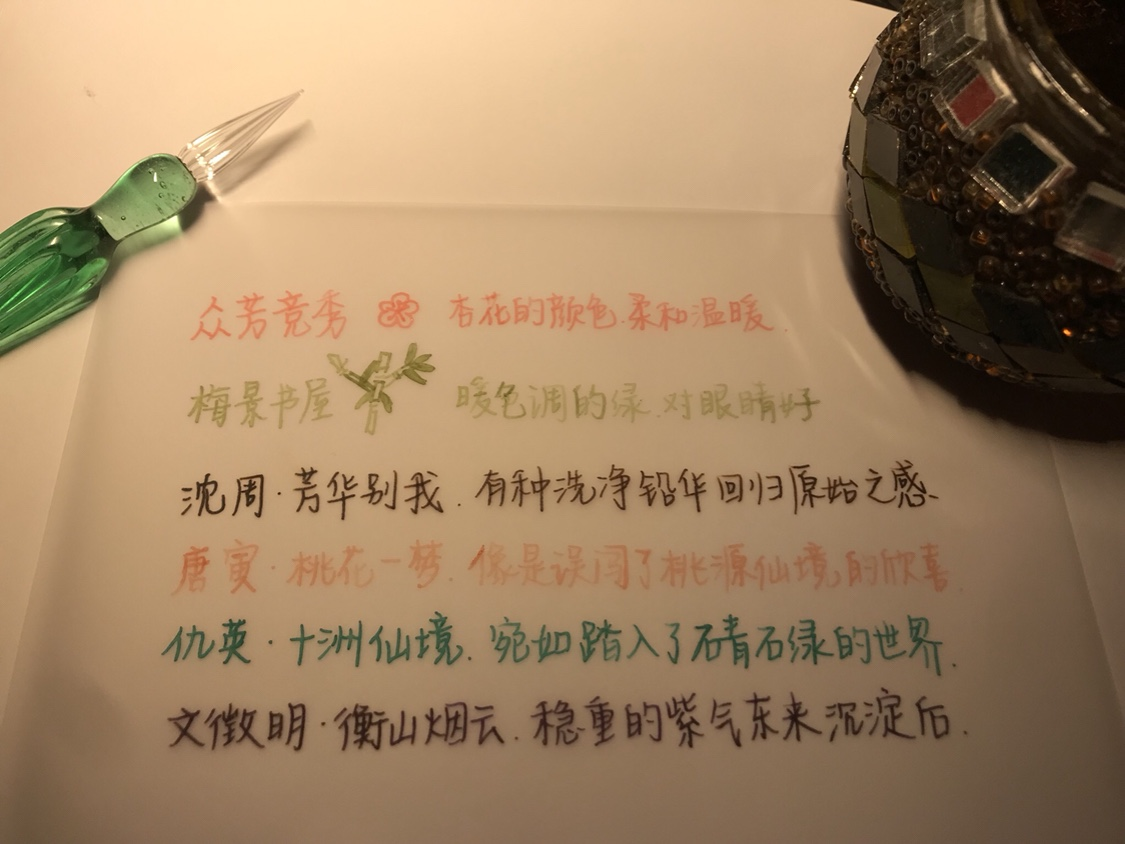 众芳竞秀 杏花的颜色.柔和温暖.
梅景书屋 暖色调的绿.对眼睛好
沈周·芳华别我.有种洗净铅华回归原始之感.
唐寅·桃花一梦.像是误闯了桃源仙境的欣喜.
仇英·十洲仙境.宛如踏入了石青石绿的世界.
文徵明·衡山烟云.稳重的紫气东来沉淀后.